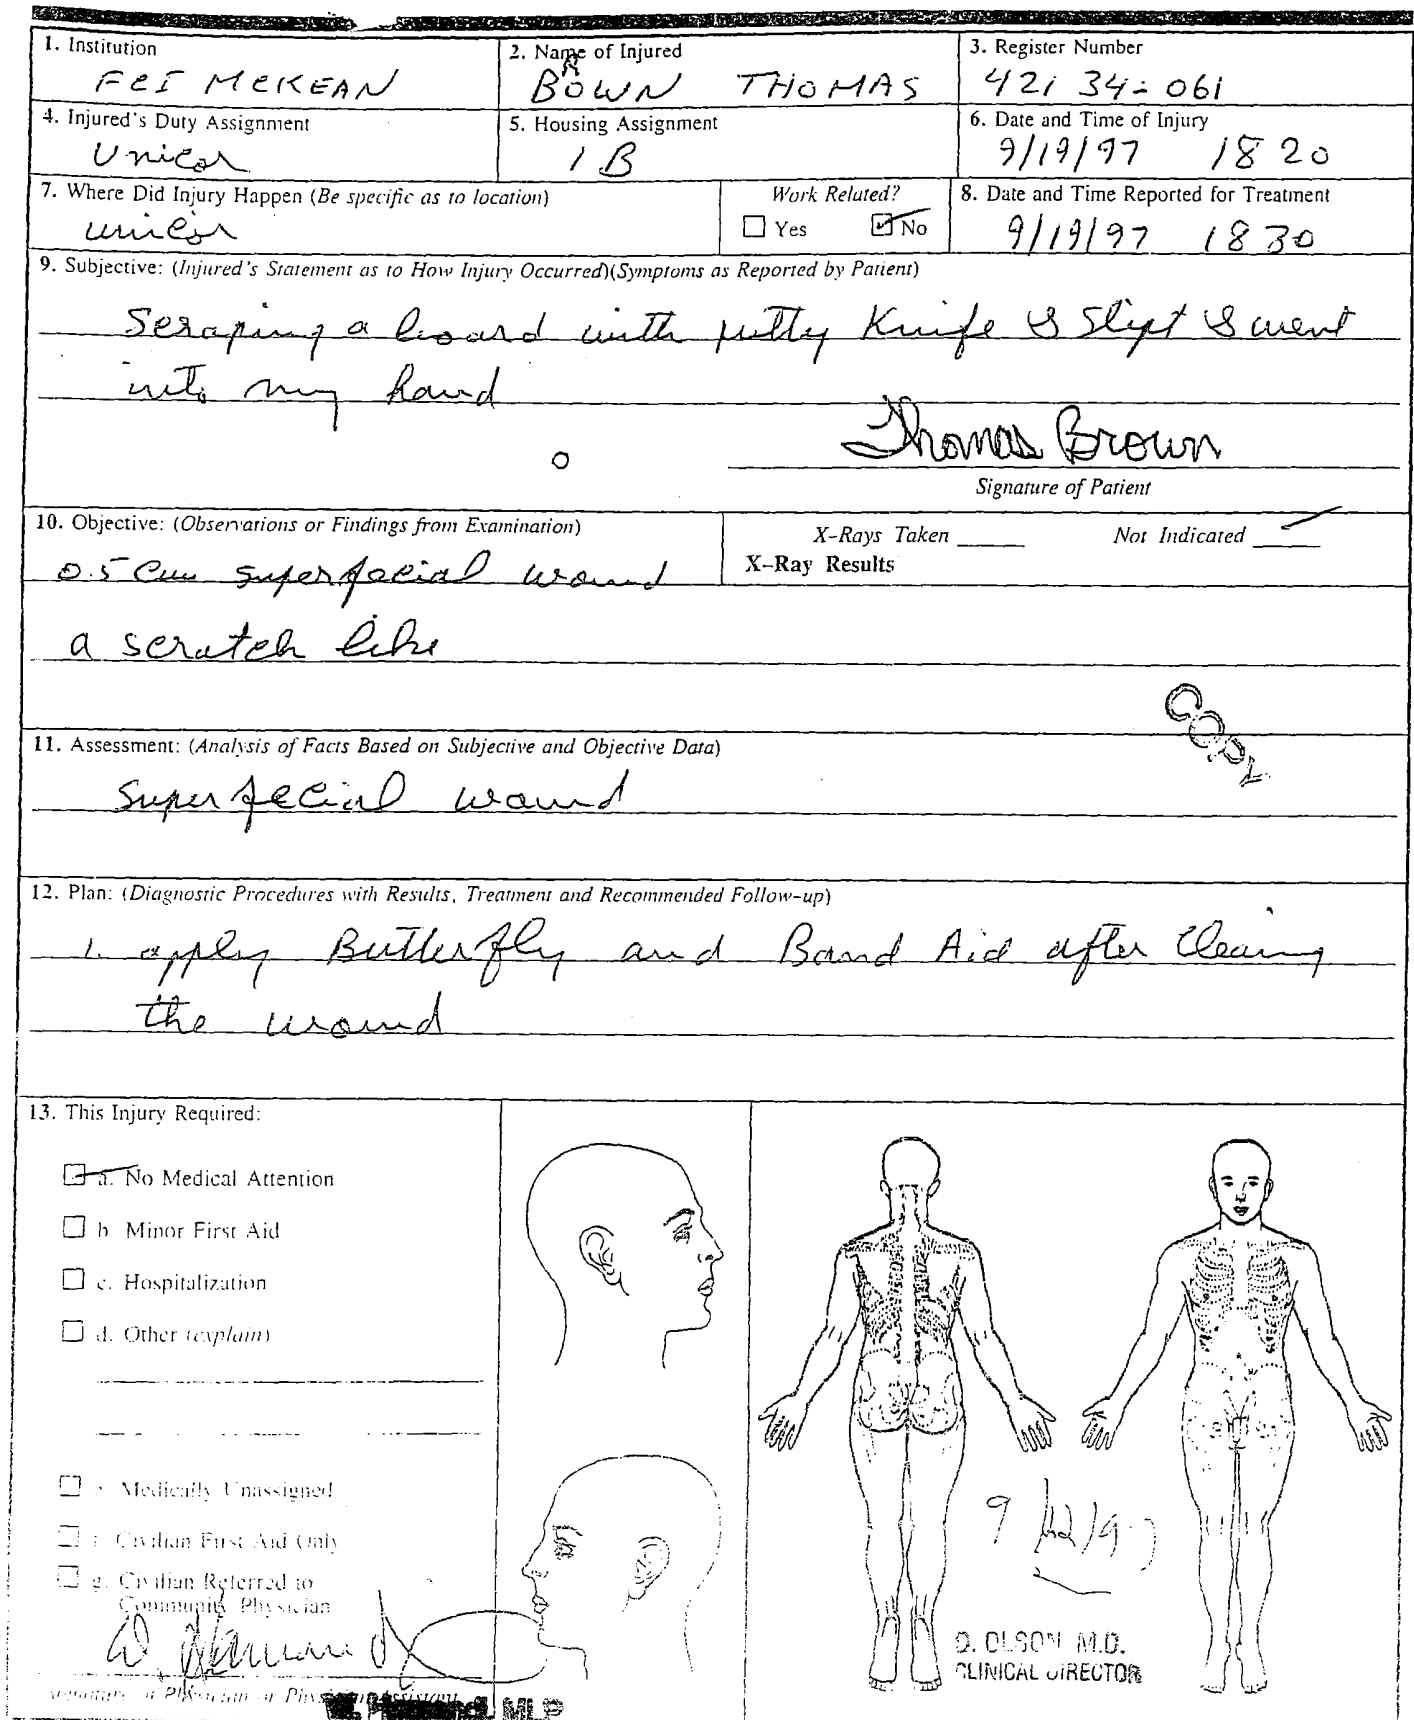 1. Institution
FCI MCKEAN
2. Name of Injured
R
BOWN THOMAS
3. Register Number
42134-061
4. Injured's Duty Assignment
Unicor
5. Housing Assignment
1B
6. Date and Time of Injury
9/19/97 1820
7. Where Did Injury Happen (Be specific as to location)
unicor
Work Related?
Yes No
8. Date and Time Reported for Treatment
9/19/97 1830
9. Subjective: (Injured's Statement as to How Injury Occurred)(Symptoms as Reported by Patient)
Scraping a board with putty Knife & Slipt & went
into my hand
Thomas Brown
Signature of Patient
10. Objective: (Observations or Findings from Examination)
0.5 cm superfecial wound
a scratch like
X-Rays Taken Not Indicated
X-Ray Results
COPY
11. Assessment: (Analysis of Facts Based on Subjective and Objective Data)
superfecial wound
12. Plan: (Diagnostic Procedures with Results, Treatment and Recommended Follow-up)
1. apply Butterfly and Band Aid after Cleaing
the wound
13. This Injury Required:
a. No Medical Attention
b. Minor First Aid
c. Hospitalization
d. Other (explain)
e. Medically Unassigned
f. Civilian First Aid Only
g. Civilian Referred to
Community Physician
Signature of Physician or Physician Assistant
MLP
D. OLSON M.D.
CLINICAL DIRECTOR